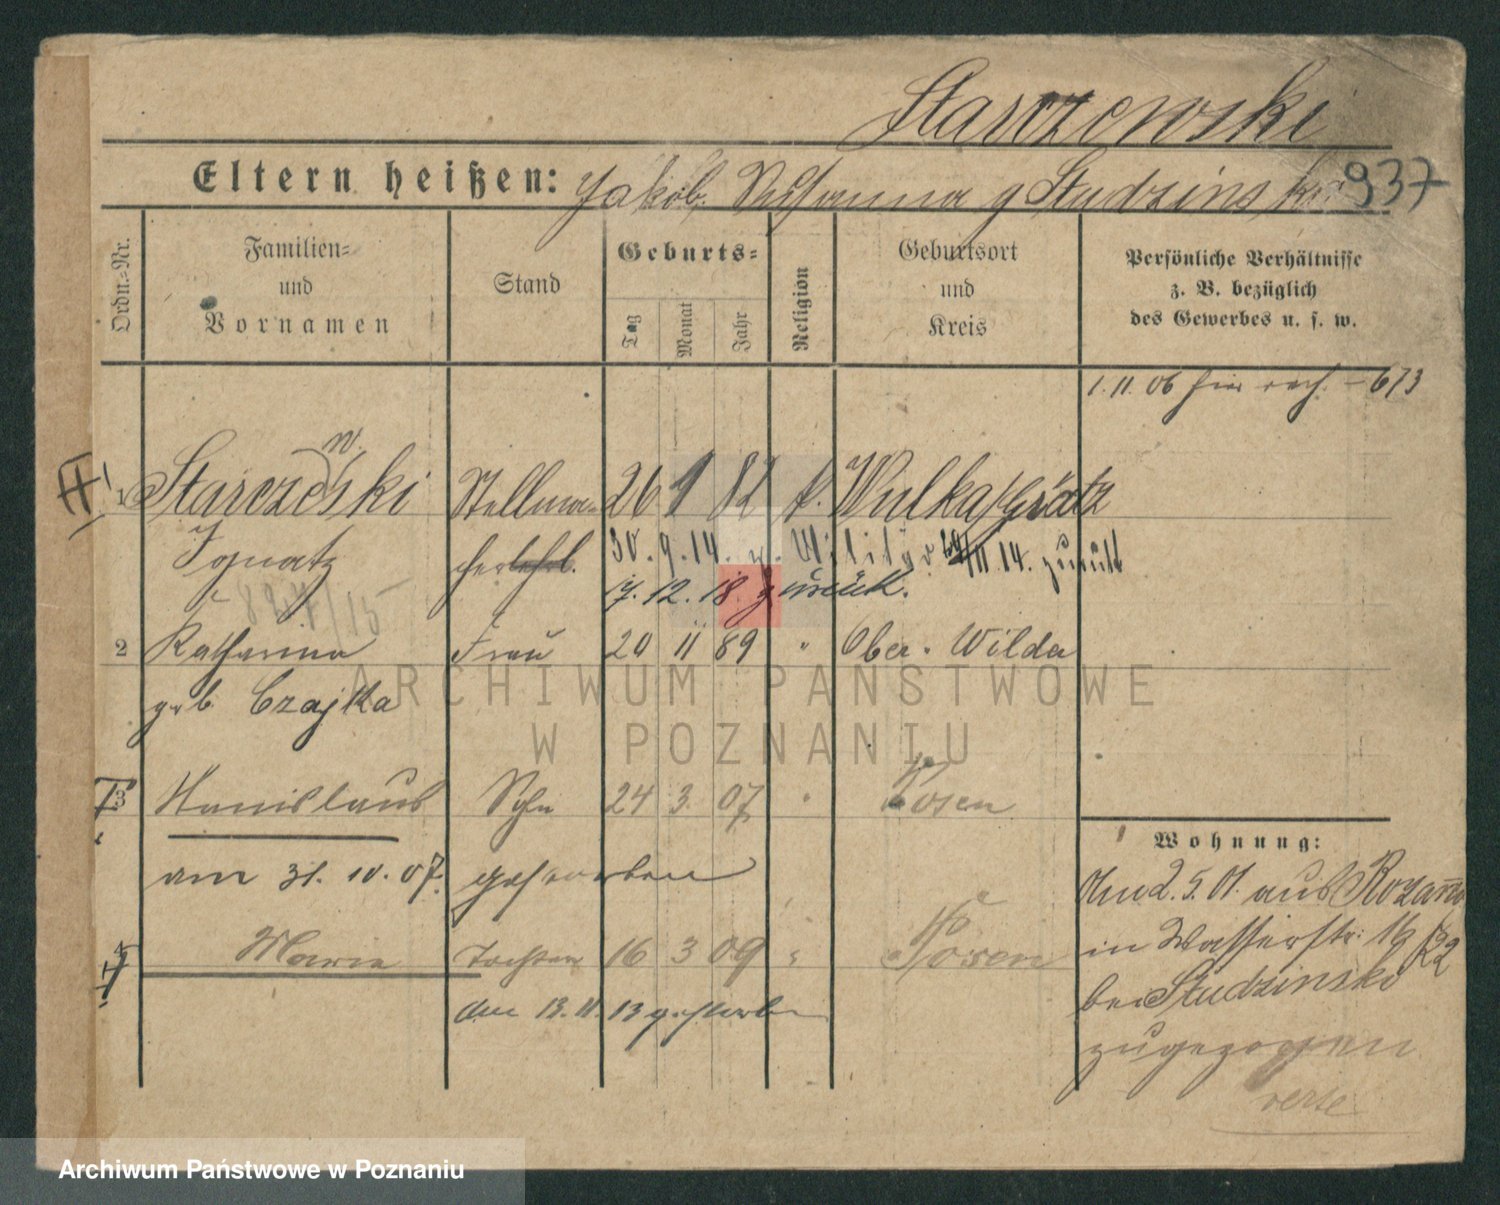 Starczewski
Eltern heißen: Jakob, Susanna g Studzinska 937
Ordn.-Nr.
Familien-
und
Vornamen
Stand
Geburts-
Tag
Monat
Jahr
Religion
Geburtsort
und
Kreis
Persönliche Verhältnisse
z. B. bezüglich
des Gewerbes u. s. w.
1. 11. 06 673
1 Starczewski Stellma- 26 1 82 k. Wulka/Grätz
Ignatz cherlehrl. 30. 9. 14. z. Militär 11. 14. zurück
827/15 17. 12. 18. zurück.
2 Katharina Frau 20 11 89 " Ober-Wilda
geb. Czajka
3 Stanislaus Sohn 24 3 07 " Posen
am 31. 10. 07. gestorben
Maria Tochter 16 3 09 " Posen
am 13. 11. 13 gestorben
Wohnung:
Am 2. 5. 01. aus
in Wasserstr. 16/22
bei Studzinski
zugezogen
verte
ARCHIWUM PAŃSTWOWE
W POZNANIU
Archiwum Państwowe w Poznaniu